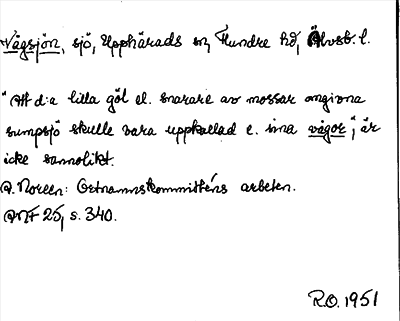 Vågsjön, sjö, Upphärads sn, Flundre hd, Älvsb. l.
"Att d:a lilla göl el. snarare av mossar omgivna
sumpsjö skulle vara uppkallad e. sina vågor", är
icke sannolikt.
A. Noreen: Ortnamnskommitténs arbeten.
ANF 25, s. 340.
R.O. 1951